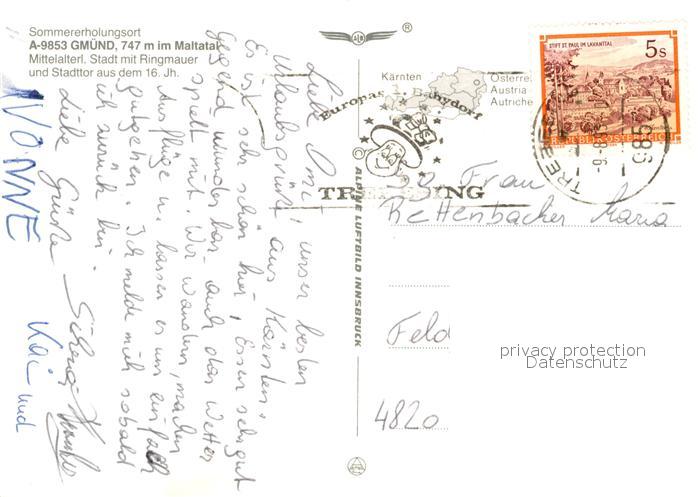 Sommererholungsort
A-9853 GMÜND, 747 m im Maltatal
Mittelalterl. Stadt mit Ringmauer
und Stadttor aus dem 16. Jh.
Kärnten
Österrei
Austria
Autriche
Europas 1. Babydorf
TREBESING
STIFT ST. PAUL IM LAVANTTAL
5s
REPUBLIK ÖSTERREICH
© ALPINE LUFTBILD INNSBRUCK
Liebe Omi, unser besten
Urlaubsgrüße aus Kärnten.
Es ist sehr schön hier, Essen sehr gut
Gegend wunderbar auch das Wetter
spielt mit. Wir wandern, machen
Ausflüge u. lassen es uns einfach
gutgehen. Ich melde mich sobald
ich zurück bin.
Liebe Grüße
Kai und
IVONNE
Frau
Rettenbacher Maria
Feld
4820
privacy protection
Datenschutz